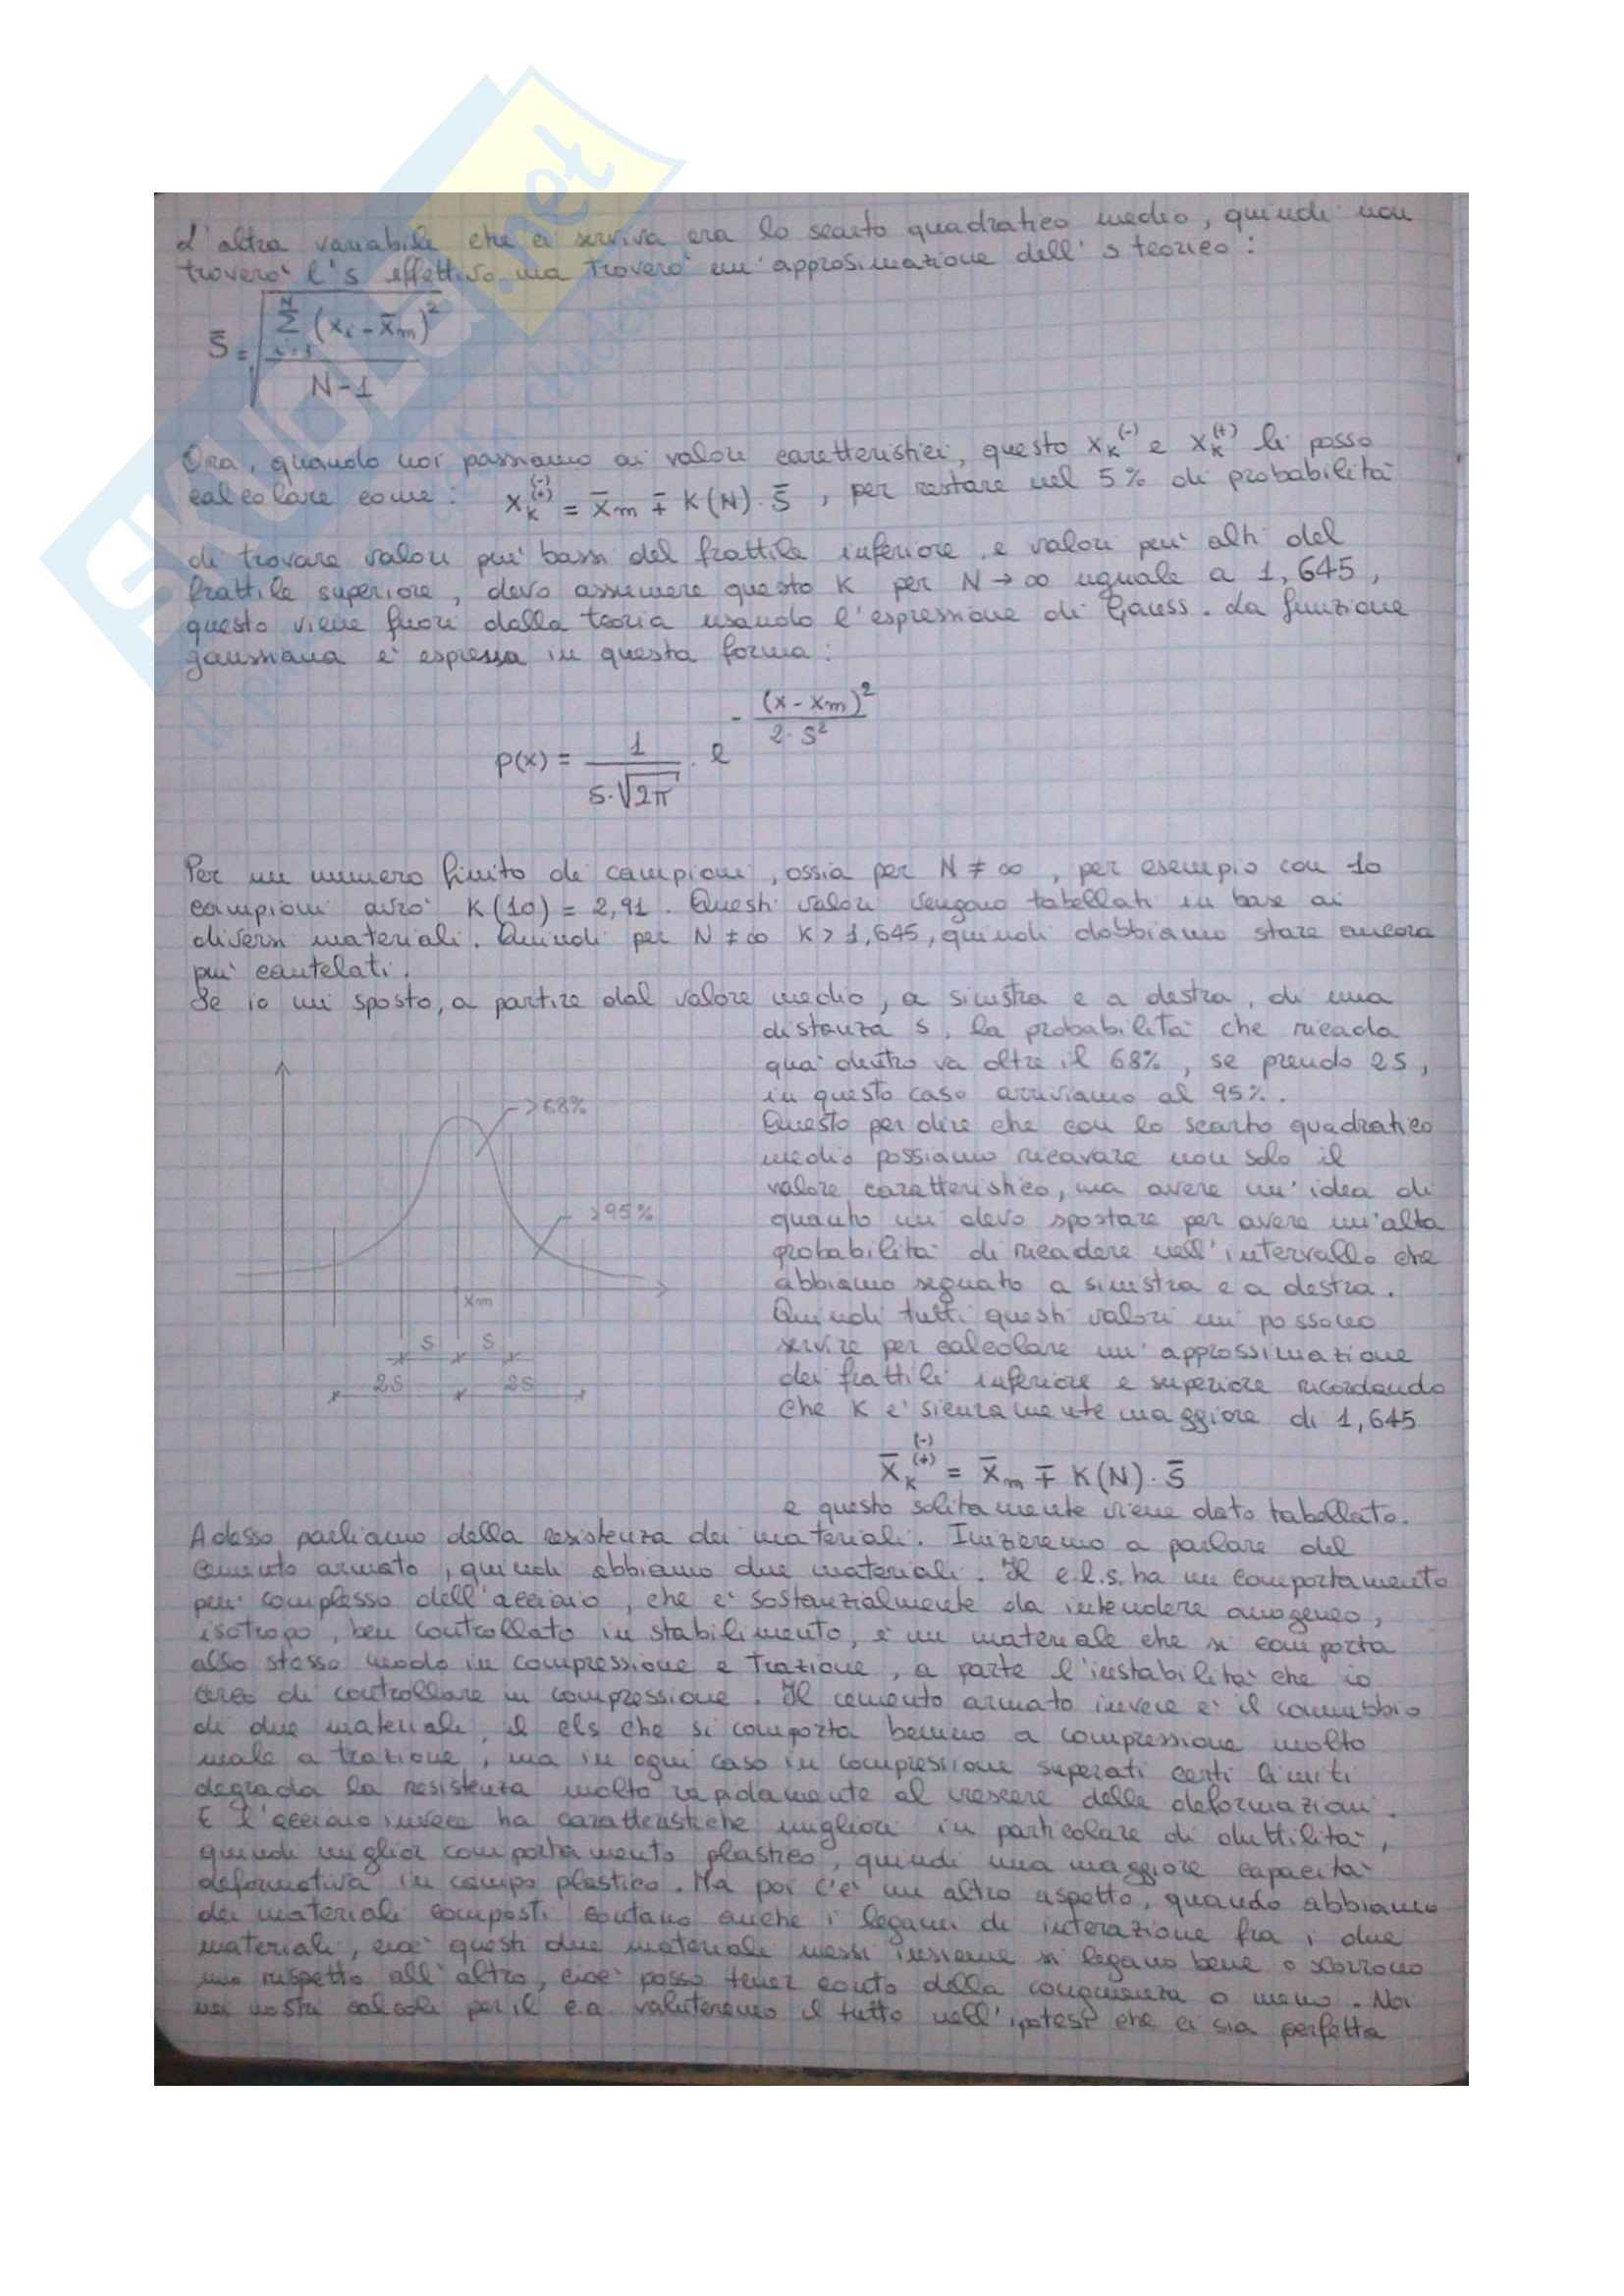 L'altra variabile che ci serviva era lo scarto quadratico medio, quindi non
troverò l's effettivo ma troverò un'approsimazione dell's teorico:
S̄ = √( Σ_{i=1}^{N} (x_i - x̄_m)² / (N-1) )
Ora, quando noi passiamo ai valori caratteristici, questo x_k^(-) e x_k^(+) li posso
calcolare come: x_k^(-)(+) = x̄_m ∓ K(N)·S̄, per restare nel 5% di probabilità
di trovare valori più bassi del frattile inferiore e valori più alti del
frattile superiore, devo assumere questo K per N→∞ uguale a 1,645,
questo viene fuori dalla teoria usando l'espressione di Gauss. La funzione
gaussiana è espressa in questa forma:
p(x) = 1/(s·√2π) · e^(-(x-x_m)²/(2·s²))
Per un numero finito di campioni, ossia per N≠∞, per esempio con 10
campioni avrò K(10) = 2,91. Questi valori vengono tabellati in base ai
diversi materiali. Quindi per N≠∞ K>1,645, quindi dobbiamo stare ancora
più cautelati.
Se io mi sposto, a partire dal valore medio, a sinistra e a destra, di una
distanza s, la probabilità che ricada
qua dentro va oltre il 68%, se prendo 2s,
in questo caso arriviamo al 95%.
Questo per dire che con lo scarto quadratico
medio possiamo ricavare non solo il
valore caratteristico, ma avere un'idea di
quanto mi devo spostare per avere un'alta
probabilità di ricadere nell'intervallo che
abbiamo segnato a sinistra e a destra.
Quindi tutti questi valori mi possono
servire per calcolare un'approssimazione
dei frattili inferiore e superiore ricordando
che K è sicuramente maggiore di 1,645
>68%
>95%
x_m
s s
2s 2s
x̄_k^(-)(+) = x̄_m ∓ K(N)·S̄
e questo solitamente viene dato tabellato.
Adesso parliamo della resistenza dei materiali. Inizieremo a parlare del
cemento armato, quindi abbiamo due materiali. Il c.l.s. ha un comportamento
più complesso dell'acciaio, che è sostanzialmente da intendere omogeneo,
isotropo, ben controllato in stabilimento, è un materiale che si comporta
allo stesso modo in compressione e trazione, a parte l'instabilità che io
cerco di controllare in compressione. Il cemento armato invece è il connubbio
di due materiali, il cls che si comporta benino a compressione molto
male a trazione, ma in ogni caso in compressione superati certi limiti
degrada la resistenza molto rapidamente al crescere delle deformazioni.
E l'acciaio invece ha caratteristiche migliori in particolare di duttilità,
quindi miglior comportamento plastico, quindi una maggiore capacità
deformativa in campo plastico. Ma poi c'è un altro aspetto, quando abbiamo
dei materiali composti contano anche i legami di interazione fra i due
materiali, cioè questi due materiali messi insieme si legano bene o scorrono
uno rispetto all'altro, cioè posso tener conto della congruenza o meno. Noi
nei nostri calcoli per il c.a. valuteremo il tutto nell'ipotesi che ci sia perfetta
SKUOLA.net